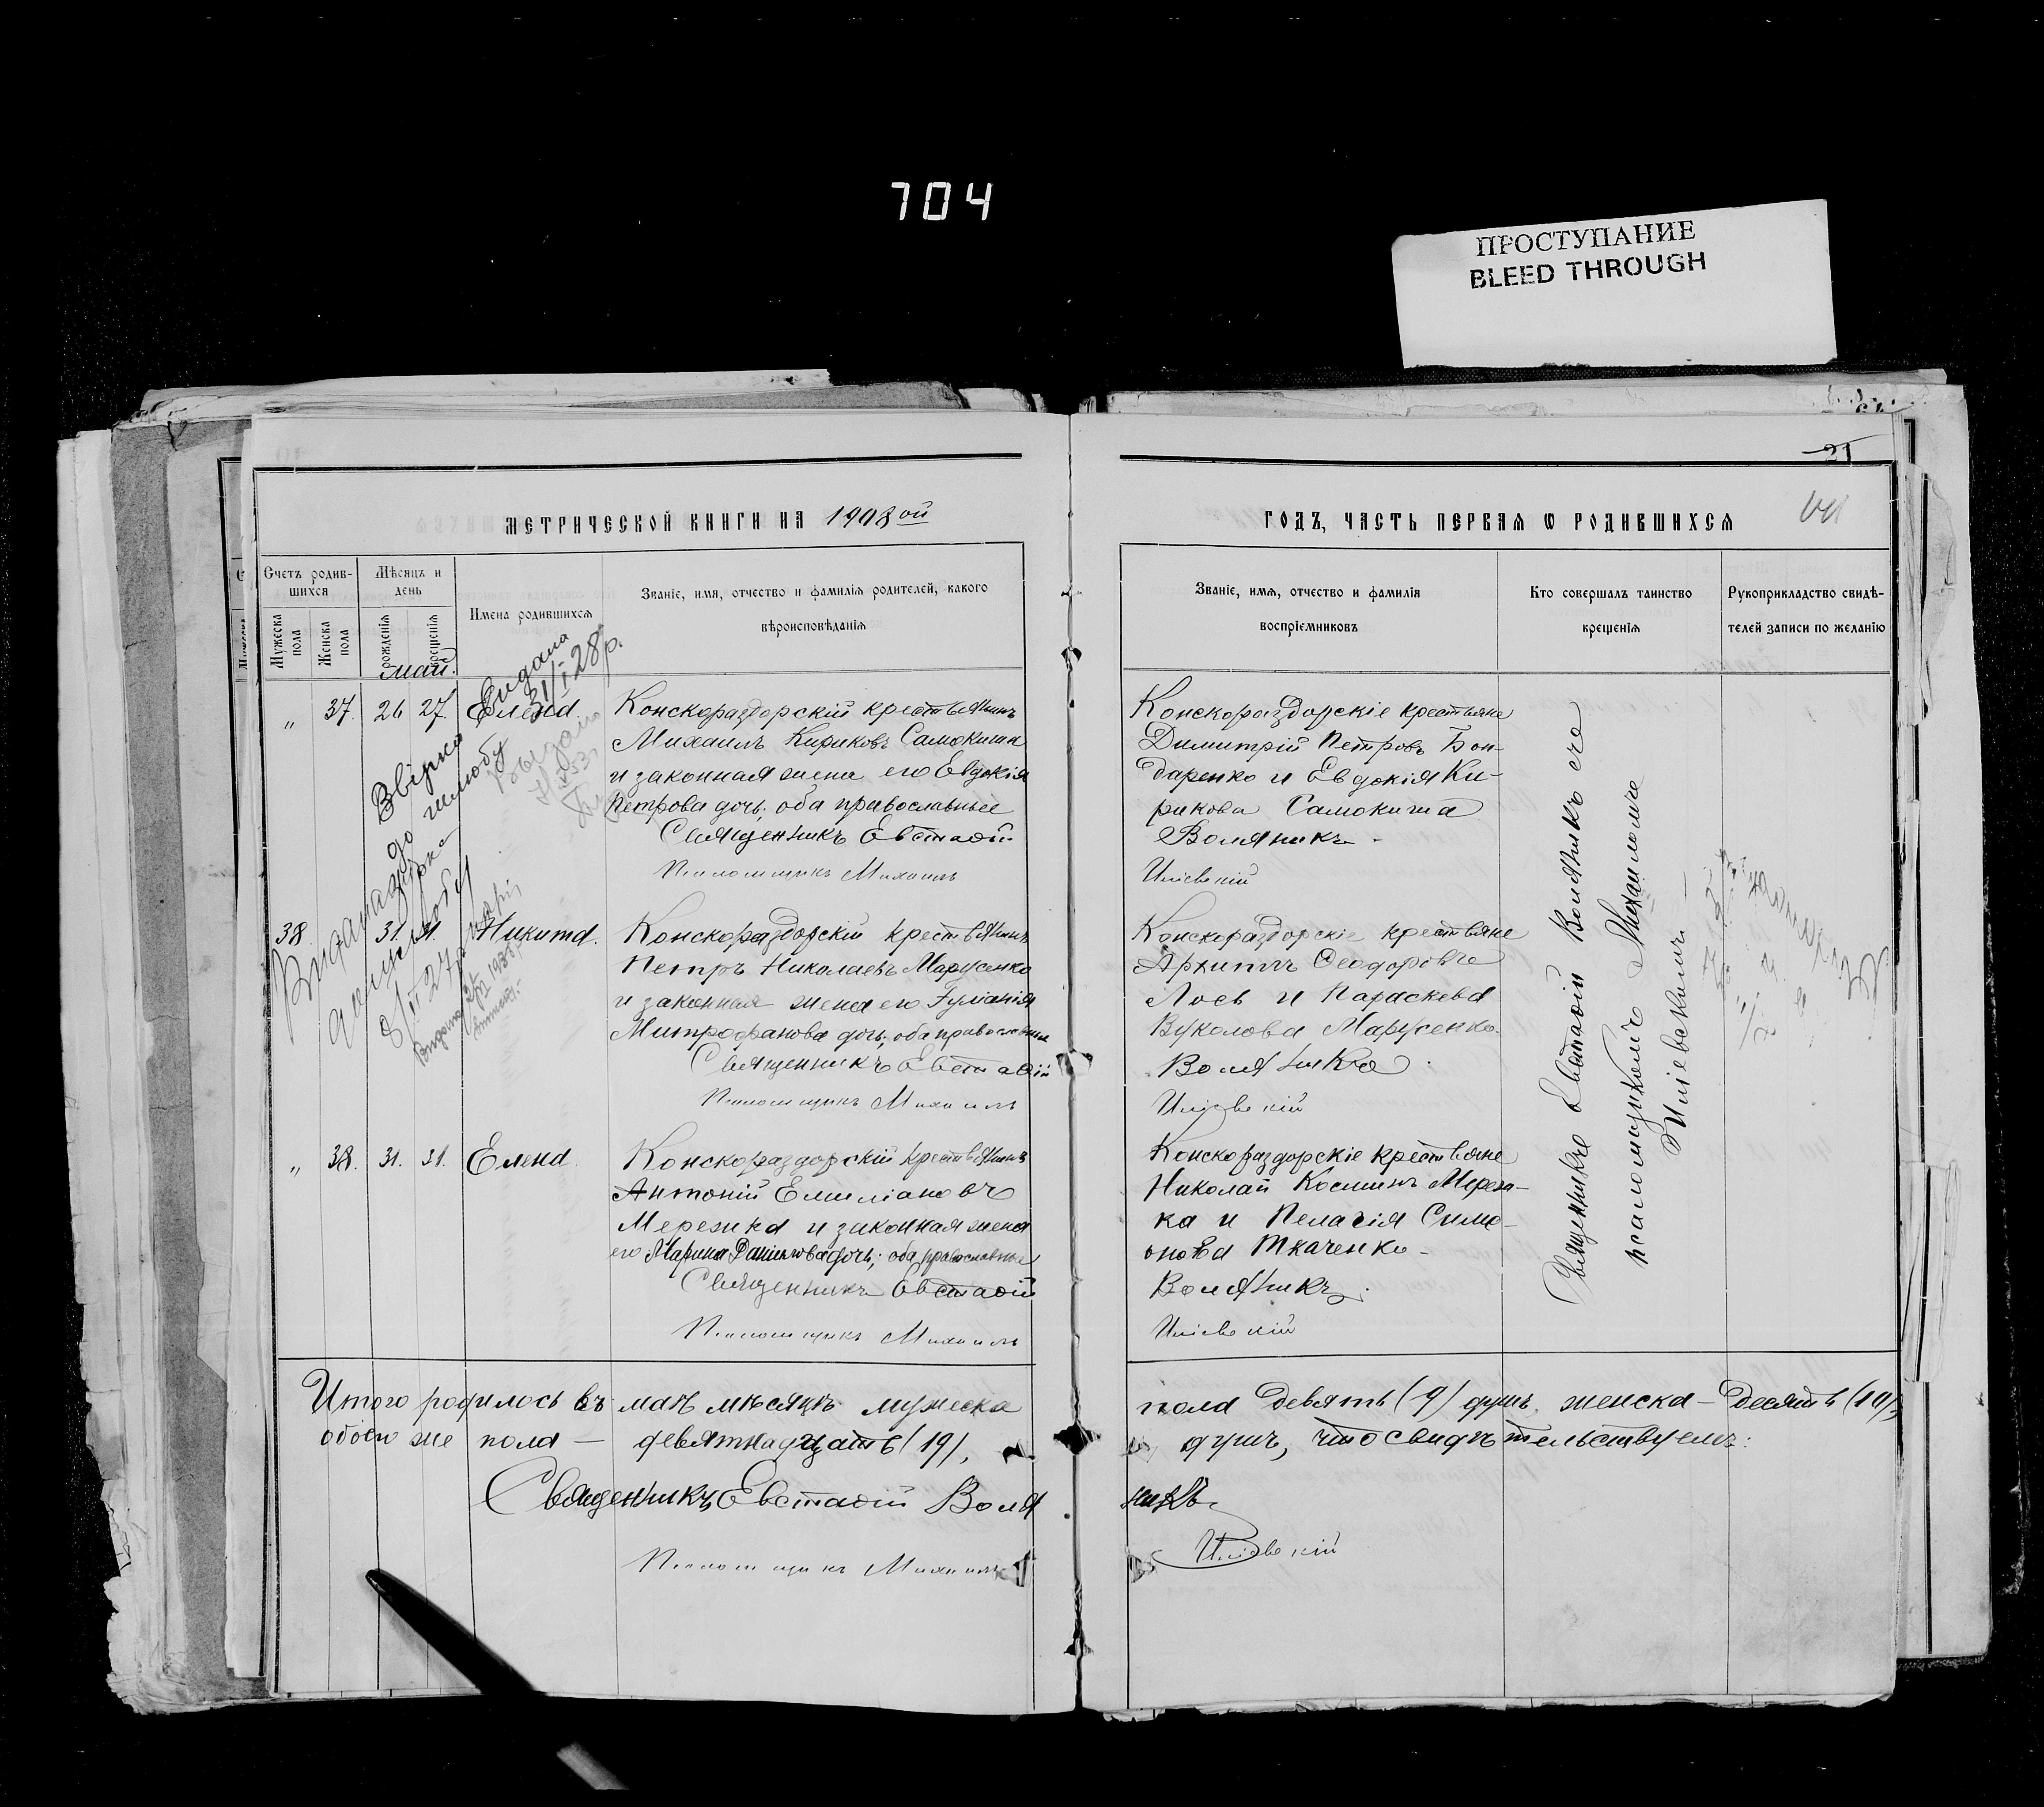 704
ПРОСТУПАНИЕ
BLEED THROUGH
21
МЕТРИЧЕСКОЙ КНИГИ НА 1908ой
ГОДЪ, ЧАСТЬ ПЕРВАЯ Ѡ РОДИВШИХСЯ
Счетъ родив-
шихся
Мужеска пола
Женска пола
Мѣсяцъ и
день
рожденія
крещенія
Имена родившихся
Званіе, имя, отчество и фамилія родителей, какого
вѣроисповѣданія
Званіе, имя, отчество и фамилія
воспріемниковъ
Кто совершалъ таинство
крещенія
Рукоприкладство свидѣ-
телей записи по желанію
май.
„ 37. 26 27. Елена.
Конскораздорскій крестьянинъ
Михаилъ Кириковъ Самокиша
и законная жена его Евдокія
Петрова дочь, оба православные
Священникъ Евстафій
Псаломщикъ Михаилъ
Конскораздорскіе крестьяне
Димитрій Петровъ Бон-
даренко и Евдокія Ки-
рикова Самокиша
Воляникъ
Иліевскій
Видана
31/I 28 р.
Звірко
до шлюбу
38. 31. Никита.
Конскораздорскій крестьянинъ
Петръ Николаевъ Марусенко
и законная жена его Іуліанія
Митрофанова дочь, оба православные
Священникъ Евстафій
Псаломщикъ Михаилъ
Конскораздорскіе крестьяне
Архипъ Ѳеодоровъ
Лось и Параскева
Вуколова Марусенко.
Воляникъ
Иліевскій
„ 38. 31. 31. Елена
Конскораздорскій крестьянинъ
Антоній Емиліановъ
Мережка и законная жена
его Марина Даніилова дочь; оба православные
Священникъ Евстафій
Псаломщикъ Михаилъ
Конскораздорскіе крестьяне
Николай Косминъ Мереж-
ка и Пелагія Симе-
онова Ткаченко
Воляникъ
Иліевскій
Священникъ Евстафій Воляникъ съ
псаломщикомъ Михаиломъ
Иліевскимъ
Итого родилось въ маѣ мѣсяцѣ мужеска пола девять (9) душъ женска – десять (10),
обоего же пола – девятнадцать (19), душъ, что свидѣтельствуемъ:
Священникъ Евстафій Воляникъ.
Псаломщикъ Михаилъ Иліевскій